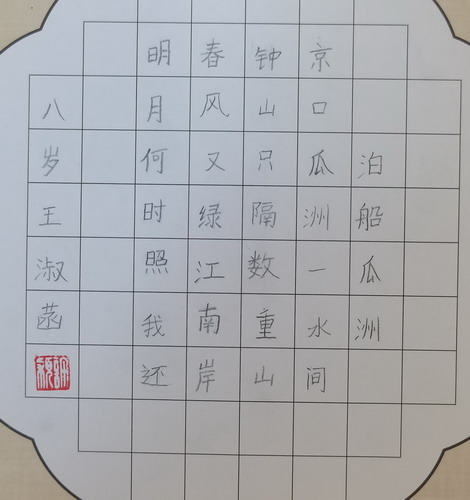 泊船瓜洲
京口瓜洲一水间
钟山只隔数重山
春风又绿江南岸
明月何时照我还
八岁王淑菡